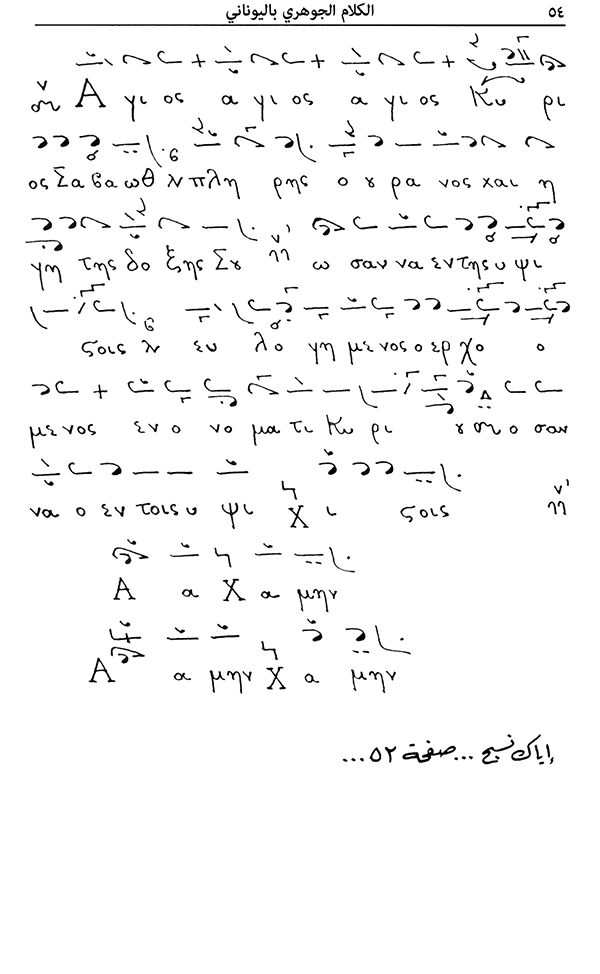 ٥٤ الكلام الجوهري باليوناني
Α γι ος α γι ος α γι ος Κυ ρι
ος Σα βα ωθ πλη ρης ο ου ρα νος και η
γη της δο ξης Σου ω σαν να εν της υ ψι
ζοις ευ λο γη με νος ο ερ χο ο
με νος εν ο νο μα τι Κυ ρι ου ο σαν
να ο εν τοις υ ψι Χ ι ζοις
Α α Χ α μην
Α α μην Χ α μην
إياك نسبح ... صفحة ٥٢ ...